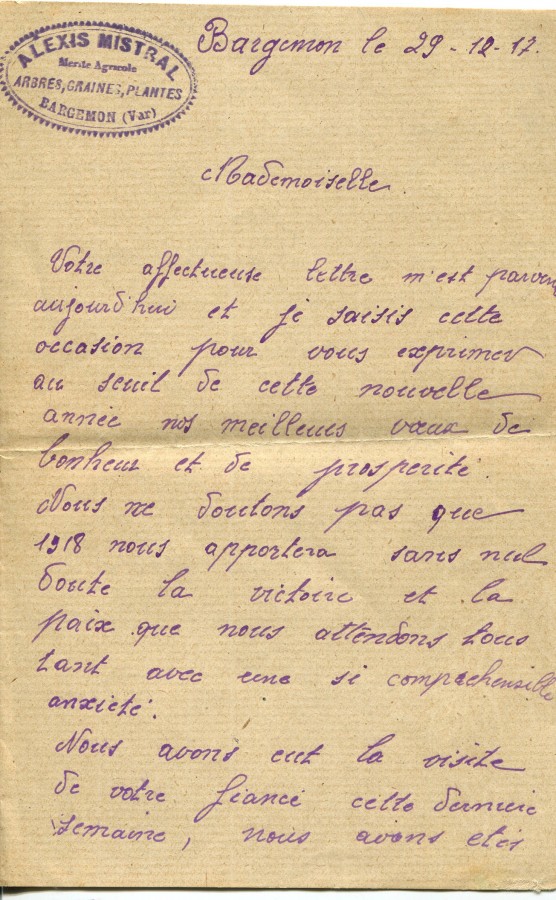 ALEXIS MISTRAL
Mérite Agricole
ARBRES, GRAINES, PLANTES
BARGEMON (Var)
Bargemon le 29-12-17.
Mademoiselle
Votre affectueuse lettre m'est parvenu
aujourd'hui et je saisis cette
occasion pour vous exprimer
au seuil de cette nouvelle
année nos meilleurs vœux de
bonheur et de prosperité
Nous ne doutons pas que
1918 nous apportera sans nul
doute la victoire et la
paix que nous attendons tous
tant avec une si comprehensible
anxieté.
Nous avons eut la visite
de votre fiancé cette derniere
semaine, nous avons etés